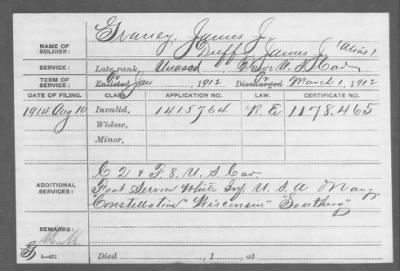 NAME OF SOLDIER: Graney, James J.
Duff, James J. (Alias)
SERVICE: Late rank, Unassd U. S. Cav
TERM OF SERVICE: Enlisted Jan , 1912 Discharged March 1, 1912
DATE OF FILING. CLASS. APPLICATION NO. LAW. CERTIFICATE NO.
1914 Aug 10 Invalid, 1415764 R.E. 1178.465
Widow,
Minor,
ADDITIONAL SERVICES: C 21 & F 8, U. S. Cav.
Foot Service White Inf U. S. A & Navy
Constellation" Wisconsin"
REMARKS:
3-421
Died , 1 , at